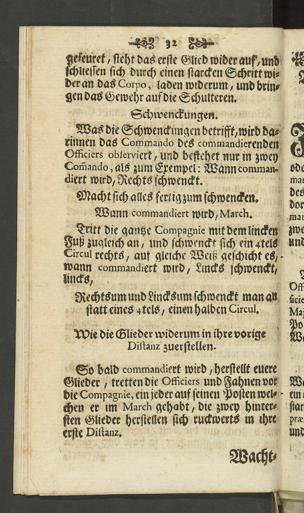 32
gefeuret, sieht das erste Glied wider auf, und
schliessen sich durch einen starcken Schritt wi-
der an das Corpo, laden widerum, und brin-
gen das Gewehr auf die Schulteren.
Schwenckungen.
Was die Schwenckungen betrifft, wird da-
rinnen das Commando des commandierenden
Officiers observiert, und bestehet nur in zwey
Com̄ando, als zum Exempel: Wann comman-
diert wird, Rechts schwenckt.
Macht sich alles fertig zum schwencken,
Wann commandiert wird, March.
Tritt die gantze Compagnie mit dem lincken
Fuß zugleich an, und schwenckt sich ein 4tels
Circul rechts, auf gleiche Weiß geschicht es,
wann commandiert wird, Lincks schwenckt,
lincks,
Rechtsum und Lincksum schwenckt man an
statt eines 4tels, einen halben Circul.
Wie die Glieder widerum in ihre vorige
Distanz zuerstellen.
So bald commandiert wird, herstellt euere
Glieder, tretten die Officiers und Fahnen vor
die Compagnie, ein jeder auf seinen Posten wel-
chen er im March gehabt, die zwey hinter-
sten Glieder herstellen sich ruckwerts in ihre
erste Distanz.
Wacht-